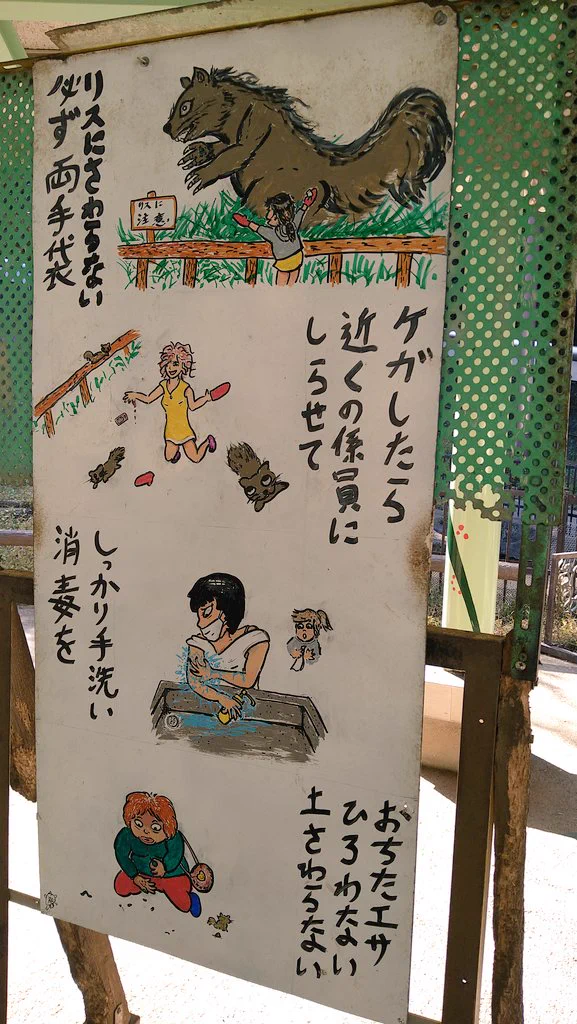 リスにさわらない
必ず両手袋
リスに
注意
ケガしたら
近くの係員に
しらせて
しっかり手洗い
消毒を
おちたエサ
ひろわない
土さわらない